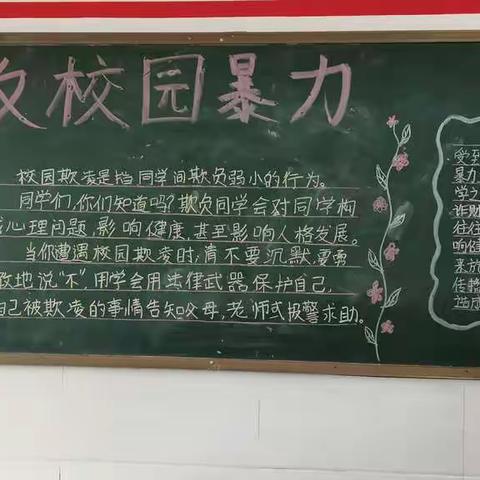 反校园暴力
校园欺凌是指同学间欺负弱小的行为。
同学们,你们知道吗?欺负同学会对同学构
成心理问题,影响健康,甚至影响人格发展。
当你遭遇校园欺凌时,请不要沉默,勇
敢地说“不”,用学会用法律武器保护自己,
自己被欺凌的事情告知父母,老师或报警求助。
受到
暴力
学之
诈财
往往
响健